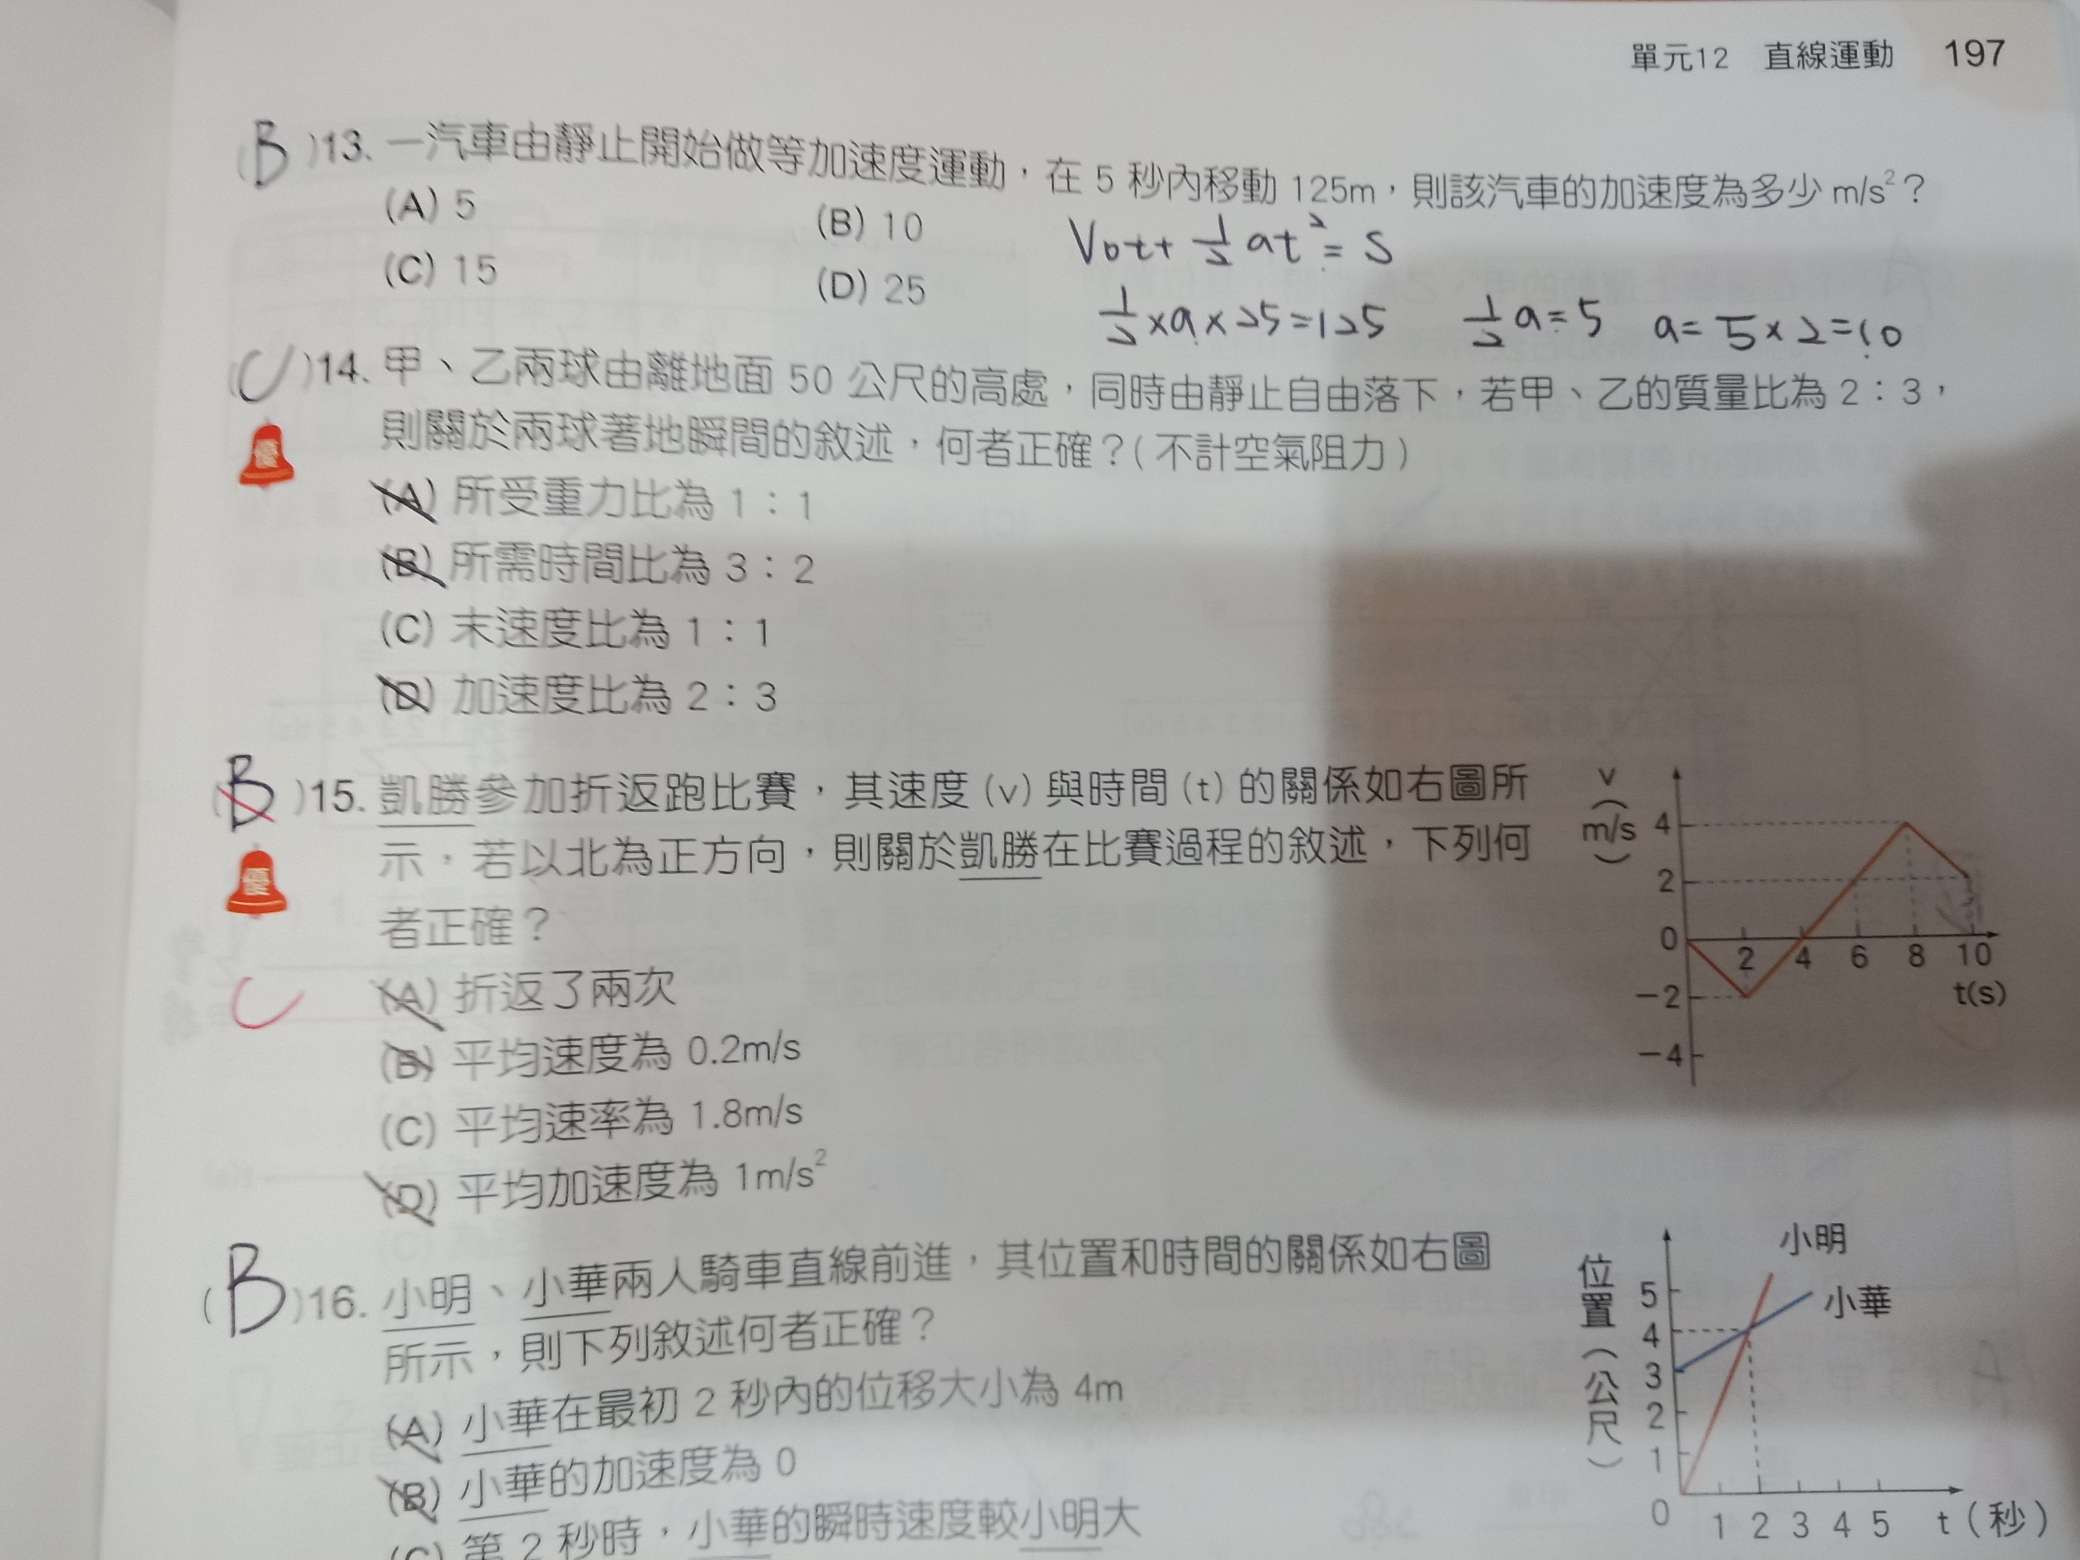 單元12 直線運動 197
(B)13. 一汽車由靜止開始做等加速度運動，在 5 秒內移動 125m，則該汽車的加速度為多少 m/s²？
(A) 5 (B) 10
V₀t+ 1/2 at² = S
(C) 15 (D) 25
1/2 ×a×25=125 1/2 a=5 a=5×2=10
(C)14. 甲、乙兩球由離地面 50 公尺的高處，同時由靜止自由落下，若甲、乙的質量比為 2：3，
優 則關於兩球著地瞬間的敘述，何者正確？(不計空氣阻力)
(A) 所受重力比為 1：1
(B) 所需時間比為 3：2
(C) 末速度比為 1：1
(D) 加速度比為 2：3
(B)15. 凱勝參加折返跑比賽，其速度(v)與時間(t)的關係如右圖所
示，若以北為正方向，則關於凱勝在比賽過程的敘述，下列何
優 者正確？
C (A) 折返了兩次
(B) 平均速度為 0.2m/s
(C) 平均速率為 1.8m/s
(D) 平均加速度為 1m/s²
v
(m/s)
4
2
0 2 4 6 8 10
-2 t(s)
-4
(B)16. 小明、小華兩人騎車直線前進，其位置和時間的關係如右圖
所示，則下列敘述何者正確？
(A) 小華在最初 2 秒內的位移大小為 4m
(B) 小華的加速度為 0
(C) 第 2 秒時，小華的瞬時速度較小明大
位置（公尺）
小明
小華
5
4
3
2
1
0 1 2 3 4 5 t（秒）